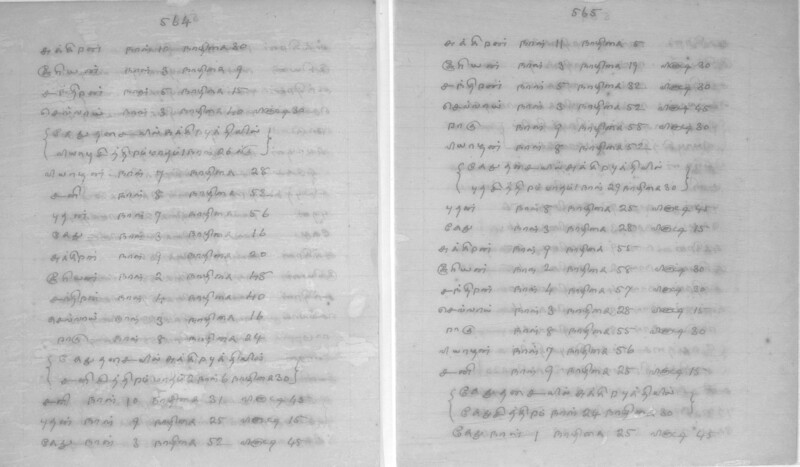 564
சுக்கிரன் நாள் 10 நாழிகை 30
சூரியன் நாள் 3 நாழிகை 9
சந்திரன் நாள் 5 நாழிகை 15
செவ்வாய் நாள் 3 நாழிகை 40 வினாடி 30
கேது தசையில் சுக்கிரபுக்தியில்
வியாழன் நாள் 7 நாழிகை 28
சனி நாள் 8 நாழிகை 52
புதன் நாள் 7 நாழிகை 56
கேது நாள் 3 நாழிகை 16
சுக்கிரன் நாள் 9 நாழிகை 20
சூரியன் நாள் 2 நாழிகை 48
சந்திரன் நாள் 4 நாழிகை 40
செவ்வாய் நாள் 3 நாழிகை 16
ராகு நாள் 8 நாழிகை 24
கேது தசையில் சுக்கிரபுக்தியில்
சனி நாள் 10 நாழிகை 31 வினாடி 45
புதன் நாள் 9 நாழிகை 25 வினாடி 15
கேது நாள் 3 நாழிகை 52 வினாடி 45
565
சுக்கிரன் நாள் 11 நாழிகை 5
சூரியன் நாள் 3 நாழிகை 19 வினாடி 30
சந்திரன் நாள் 5 நாழிகை 32 வினாடி 30
செவ்வாய் நாள் 3 நாழிகை 52 வினாடி 45
ராகு நாள் 9 நாழிகை 58 வினாடி 30
வியாழன் நாள் 8 நாழிகை 52
கேது தசையில் சுக்கிரபுக்தியில்
நாள் 29 நாழிகை 30
புதன் நாள் 8 நாழிகை 25 வினாடி 45
கேது நாள் 3 நாழிகை 28 வினாடி 15
சுக்கிரன் நாள் 9 நாழிகை 55
சூரியன் நாள் 2 நாழிகை 58 வினாடி 30
சந்திரன் நாள் 4 நாழிகை 57 வினாடி 30
செவ்வாய் நாள் 3 நாழிகை 28 வினாடி 15
ராகு நாள் 8 நாழிகை 55 வினாடி 30
வியாழன் நாள் 7 நாழிகை 56
சனி நாள் 9 நாழிகை 25 வினாடி 15
கேது தசையில் சுக்கிரபுக்தியில்
நாள் 24 நாழிகை 30
கேது நாள் 1 நாழிகை 25 வினாடி 45